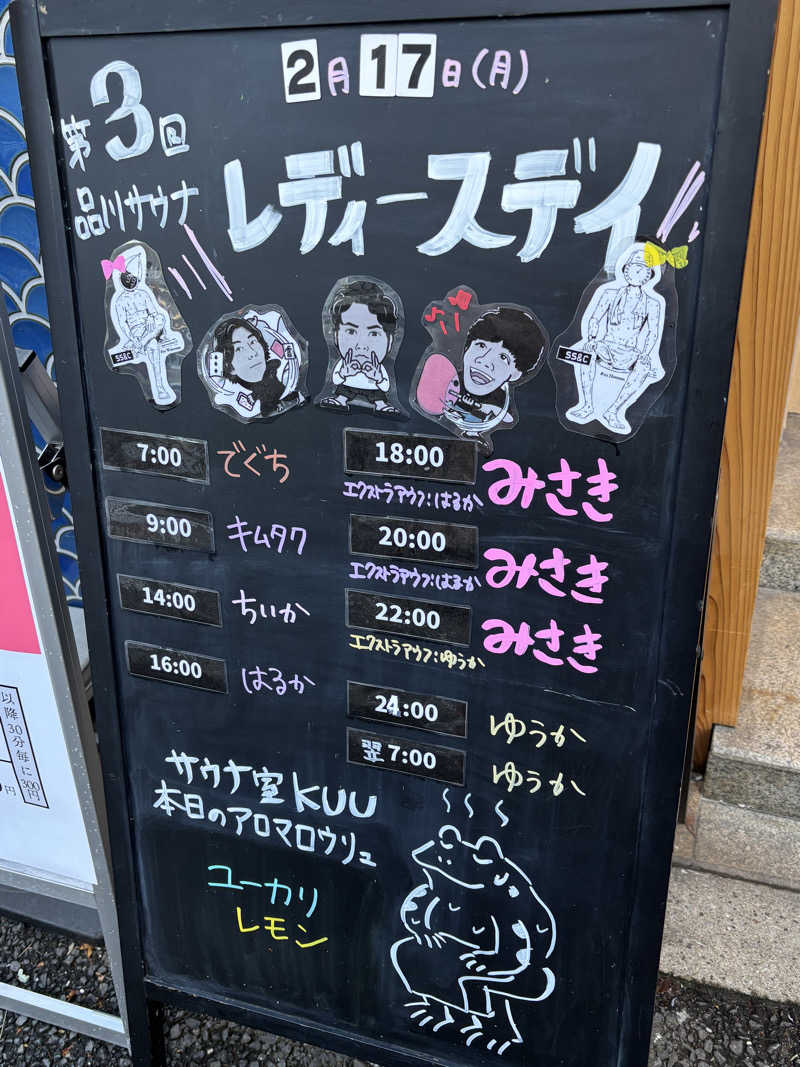 2月17日(月)
第3回
品川サウナ
レディースデイ
SS
SS&C
SS&C
7:00 でぐち
9:00 キムタク
14:00 ちいか
16:00 はるか
18:00 みさき
エクストラアウフ:はるか
20:00 みさき
エクストラアウフ:はるか
22:00 みさき
エクストラアウフ:ゆうか
24:00 ゆうか
翌7:00 ゆうか
サウナ室KUU
本日のアロマロウリュ
ユーカリ
レモン
以降30分毎に300円
円